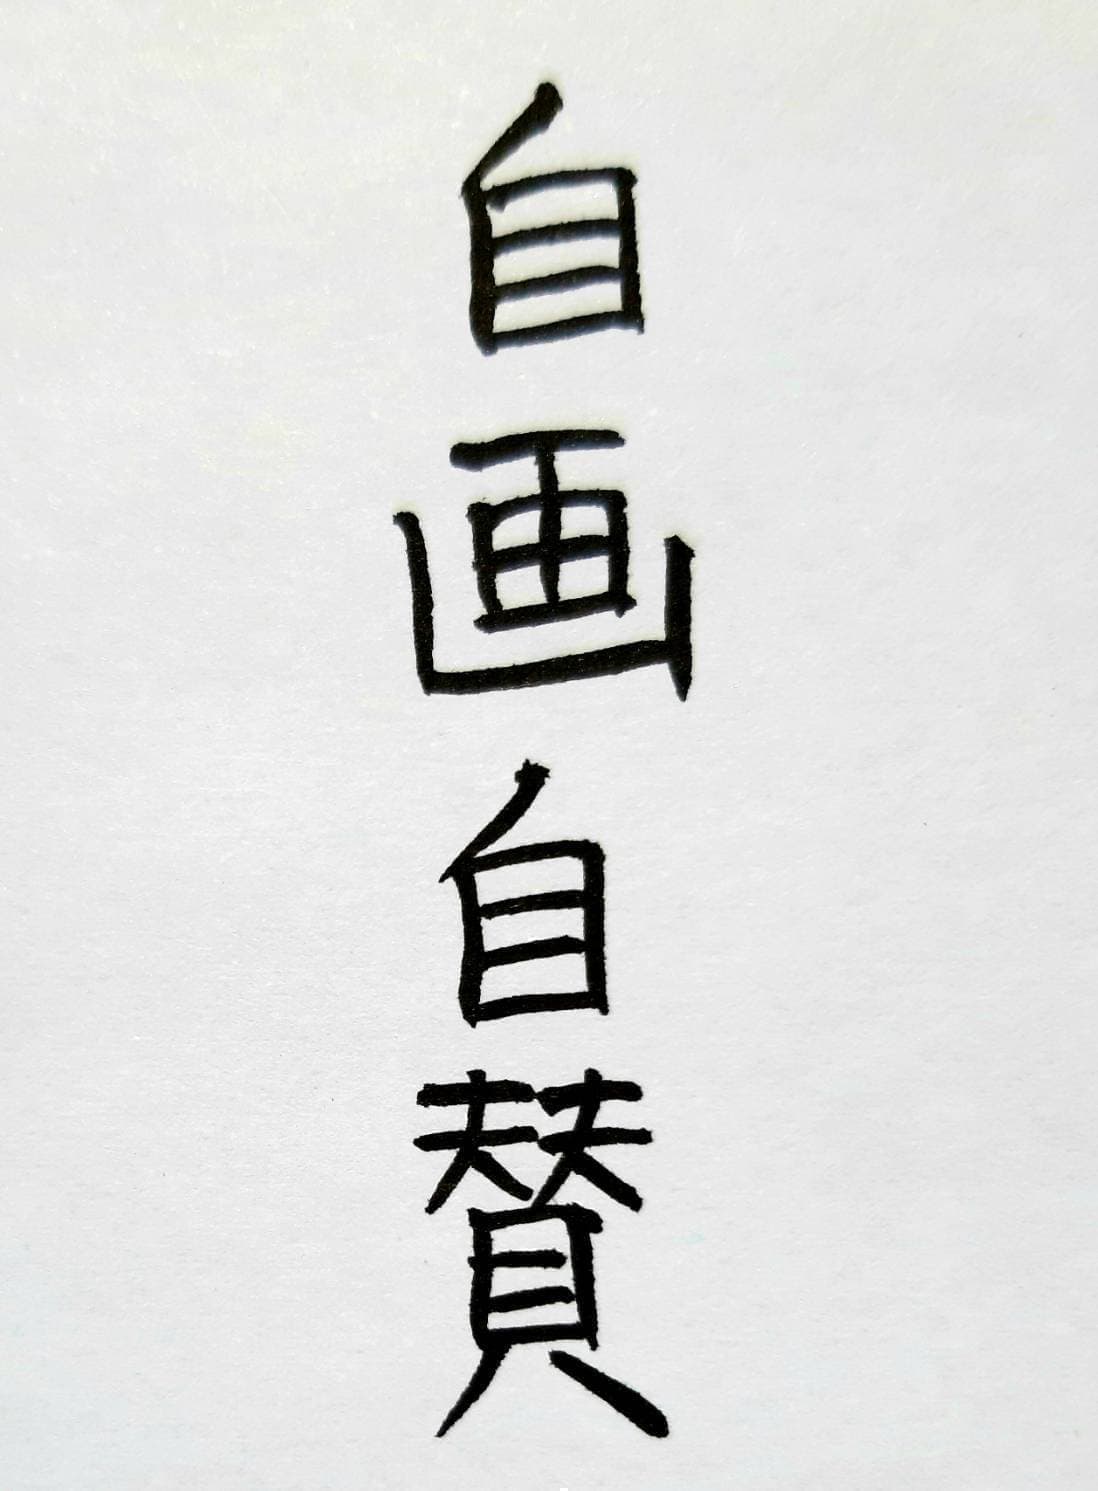 自画自賛